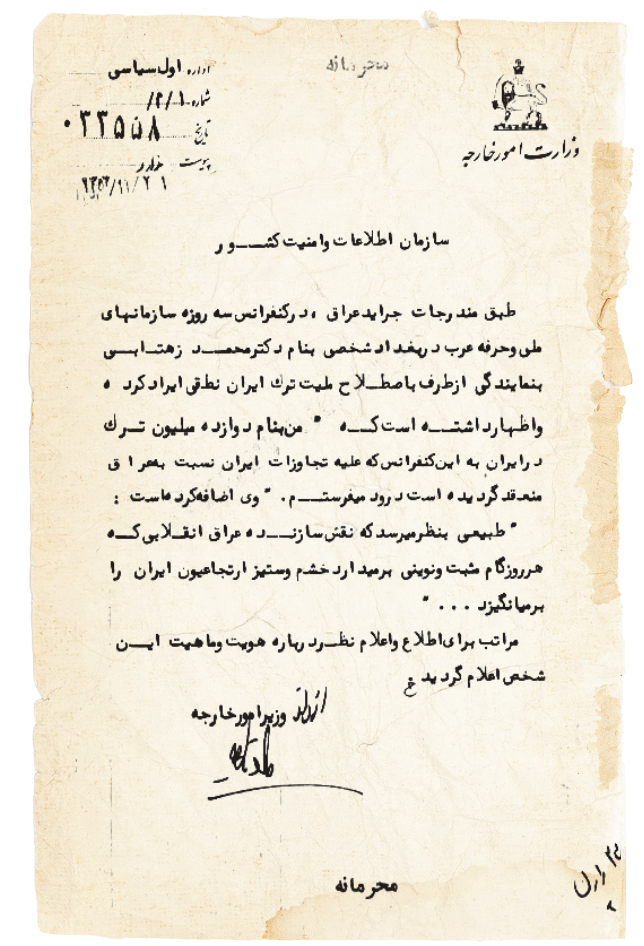 محرمانه
وزارت امور خارجه
اداره اول سیاسی
شماره ۲/۱/
۰۳۳۵۵۸
تاریخ
پیوست ندارد
۲۱/۱۱/
سازمان اطلاعات وامنیت کشور
طبق مندرجات جراید عراق ، در کنفرانس سه روزه سازمانهای
ملی وحرفه عرب در بغداد شخصی بنام دکتر محمد زهتابی
بنمایندگی ازطرف باصطلاح ملیت ترك ایران نطقی ایراد کرده
واظهار داشته است که " من بنام دوازده میلیون ترك
در ایران به این کنفرانس که علیه تجاوزات ایران نسبت به عراق
منعقد گردیده است درود میفرستم . " وی اضافه کرده است :
" طبیعی بنظر میرسد که نقش سازنده عراق انقلابی که
هر روز گام مثبت ونوینی برمیدارد خشم وستیز ارتجاعیون ایران را
برمیانگیزد ... "
مراتب برای اطلاع واعلام نظر درباره هویت وماهیت این
شخص اعلام گردید
وزیر امور خارجه
محرمانه